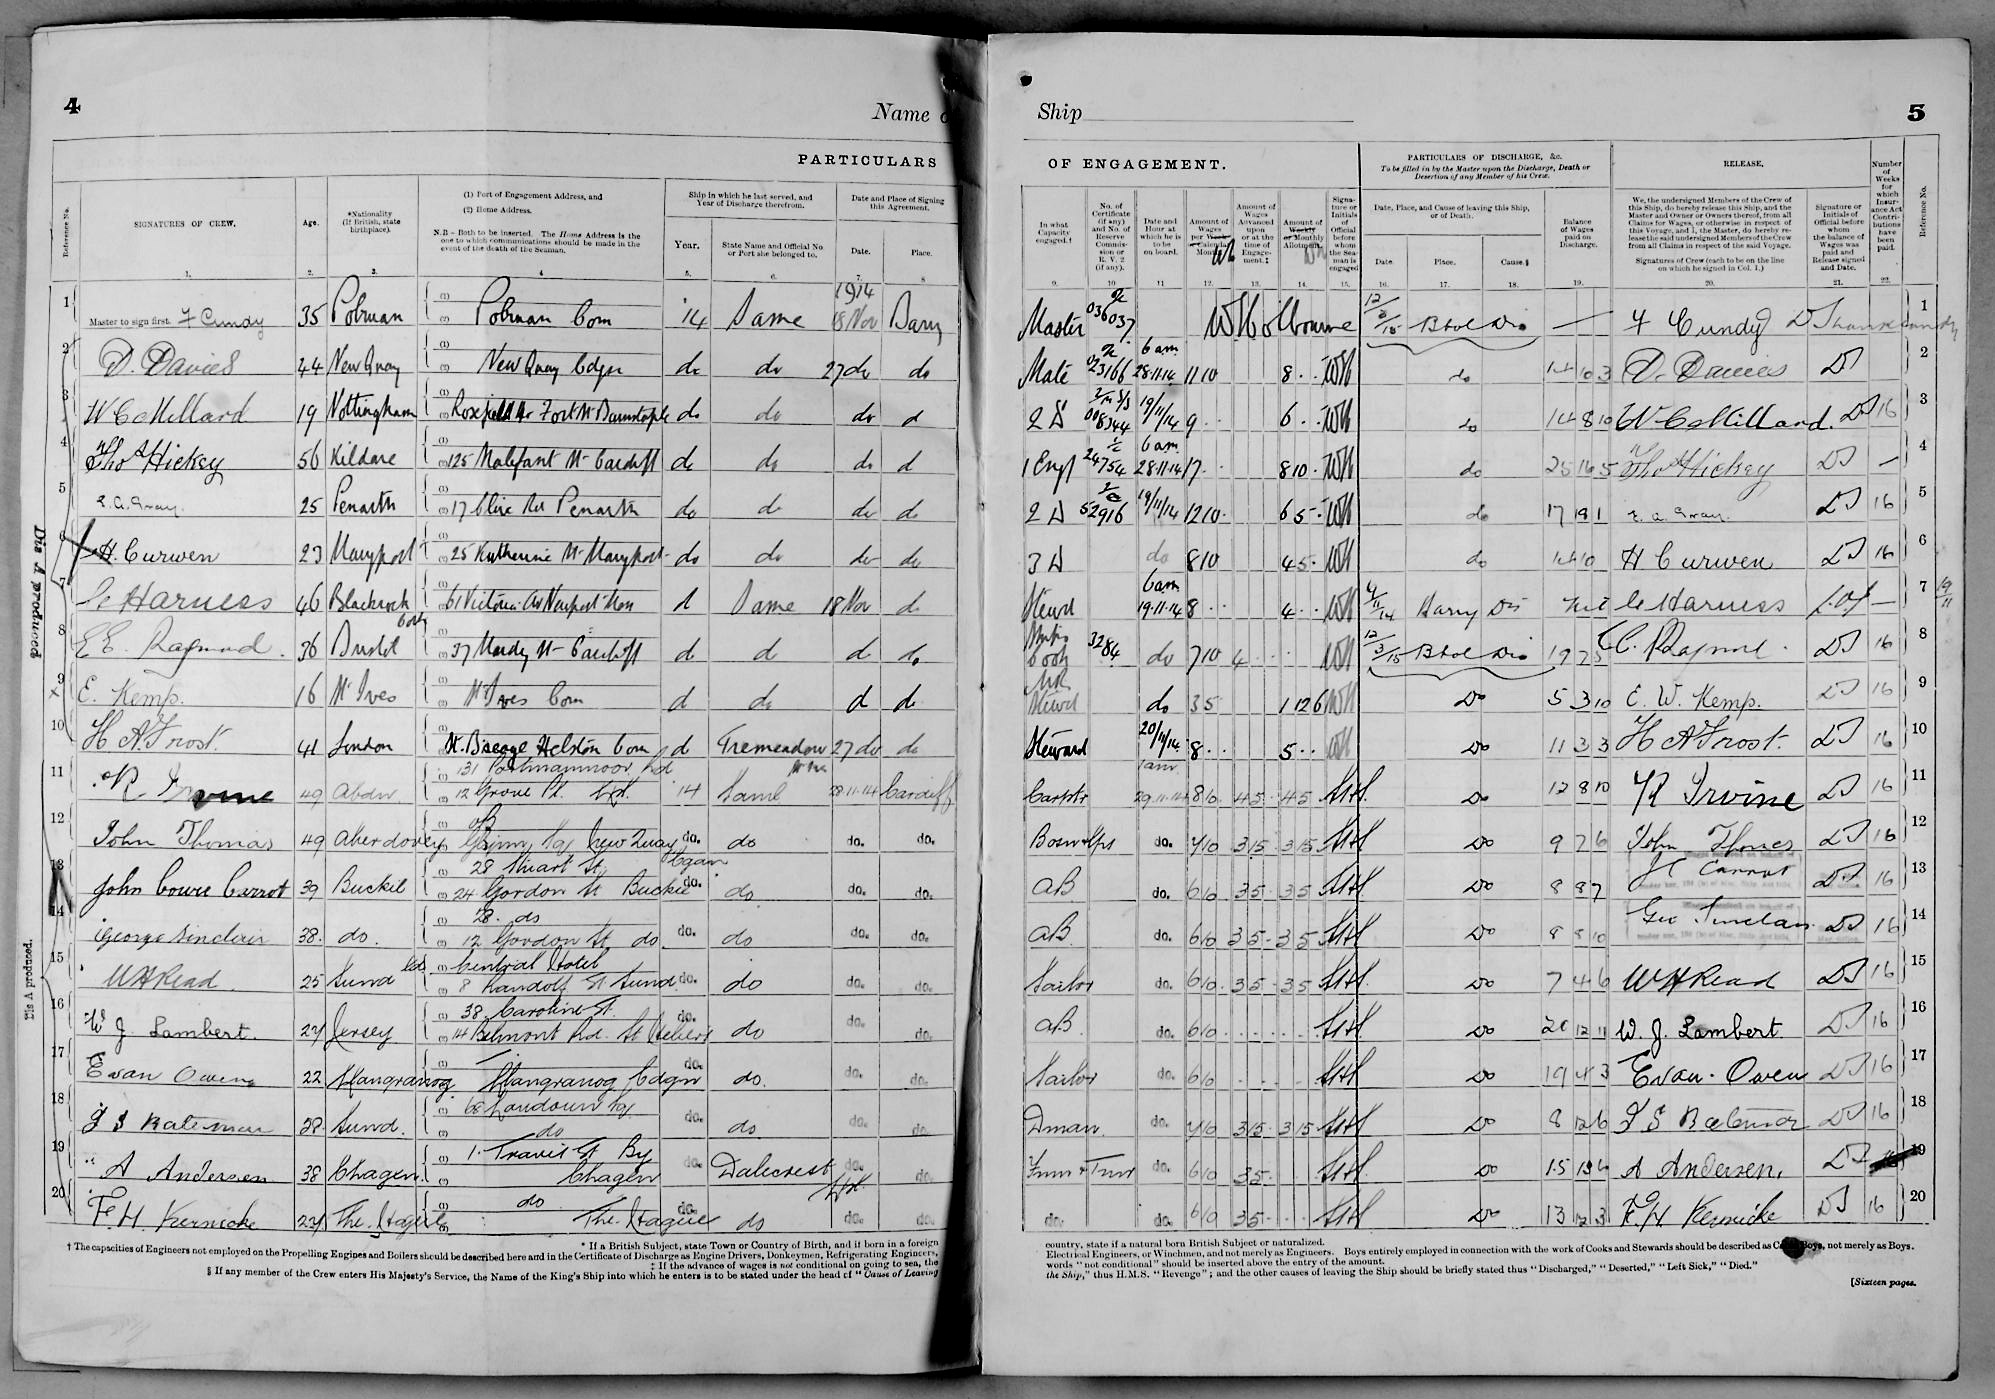 4
Name o
PARTICULARS
Reference No.
SIGNATURES OF CREW.
Age.
*Nationality (If British, state birthplace).
(1) Port of Engagement Address, and
(2) Home Address.
N.B – Both to be inserted. The Home Address is the one to which communications should be made in the event of the death of the Seaman.
Ship in which he last served, and Year of Discharge therefrom.
Year.
State Name and Official No or Port she belonged to.
Date and Place of Signing this Agreement.
Date.
Place.
1. 2. 3. 4 5. 6. 7. 8
1 Master to sign first. F Cundy 35 Polruan Polruan Corn '14 Same 1914 18 Nov Barry
2 D. Davies 44 New Quay New Quay Cdgn do do 27 do do
3 W C Millard 19 Nottingham Fort St Barnstaple do do do d
4 Thos Hickey 56 Kildare 125 Malefant St Cardiff do do do d
5 E. A. Gray. 25 Penarth 17 Clive Rd Penarth do do do do
6 H. Curwen 23 Maryport 25 Katherine St Maryport do do do do
7 C Harness 46 Blackrock Cork 61 Victoria Av Newport Mon d Same 18 Nov do
8 E E. Raymond. 36 Bristol 37 Mardy St Cardiff d d d do
9 E. Kemp. 16 St Ives St Ives Corn d do d do
10 H A Frost. 41 London St. Breage Helston Corn d Tremeadow 27 do do
11 R Irvine 49 Abdn. 131 Portmanmoor Rd
12 Grove Pl. '14 Same 28.11.14 Cardiff
12 John Thomas 49 Aberdovey New Quay do. do do. do.
13 John Cowie Carrot 39 Buckie 28 Stuart St Cgan
24 Gordon St Buckie do. do do. do.
14 George Sinclair 38. do. 28. do
12 Gordon St do do. do do. do.
15 W H Read 25 Sund Central Hotel
8 Randolf St Sund. do. do do. do.
16 W J Lambert. 27 Jersey 38 Caroline St.
14 Belmont Rd. St Heliers do. do do. do.
17 Evan Owens 22 Llangranog Llangranog Cdgn do. do. do. do.
18 J S Bateman 28. Sund. 68 Loudoun Sq
do do. do do. do.
19 A Andersen 38 Chagen. 1. Travis St By
Chagen do. Dalecrest do. do.
20 F. H. Kernicke 27 The Hague do
The Hague do. do do. do.
Dis A produced
Dis A produced.
* If a British Subject, state Town or Country of Birth, and if born in a foreign
† The capacities of Engineers not employed on the Propelling Engines and Boilers should be described here and in the Certificate of Discharge as Engine Drivers, Donkeymen, Refrigerating Engineers,
‡ If the advance of wages is not conditional on going to sea, the
§ If any member of the Crew enters His Majesty's Service, the Name of the King's Ship into which he enters is to be stated under the head of "Cause of Leaving
Ship
5
OF ENGAGEMENT.
PARTICULARS OF DISCHARGE, &c.
To be filled in by the Master upon the Discharge, Death or Desertion of any Member of his Crew.
RELEASE.
In what Capacity engaged.†
No. of Certificate (if any) and No. of Reserve Commission or R. V. 2 (if any).
Date and Hour at which he is to be on board.
Amount of Wages per Week or Calendar Month.
Amount of Wages Advanced upon or at the time of Engagement.‡
Amount of Weekly or Monthly Allotment.
Signature or Initials of Official before whom the Seaman is engaged
Date, Place, and Cause of leaving this Ship, or of Death.
Date.
Place.
Cause.§
Balance of Wages paid on Discharge.
We, the undersigned Members of the Crew of this Ship, do hereby release this Ship, and the Master and Owner or Owners thereof, from all Claims for Wages, or otherwise in respect of this Voyage, and I, the Master, do hereby release the said undersigned Members of the Crew from all Claims in respect of the said Voyage.
Signatures of Crew (each to be on the line on which he signed in Col. 1.)
Signature or Initials of Official before whom the balance of Wages was paid and Release signed and Date.
Number of Weeks for which Insurance Act Contributions have been paid.
Reference No.
9. 10 11 12. 13. 14. 15. 16. 17. 18. 19. 20. 21. 22.
Master 036037 W Holbourne 12/3/15 Bstol Dis — F Cundy 1
Mate 023166 6 am 28.11.14 11 10 8 . . WH do 14 10 3 D. Davies DJ 2
008344 19/11/14 9 . . 6 . . WH do 14 8 10 W C Millard. DJ 16 3
1 Engr 24754 6 am 28.11.14 17 . . 8 10 . WH do 25 16 5 Thos Hickey DJ — 4
52916 19/11/14 12 10 . 6 5 . WH do 17 19 1 E. A. Gray. DJ 16 5
do 8 10 4 5 . WH do 14 10 H Curwen DJ 16 6
Stewd 6 am 19.11.14 8 . . 4 . . WH Barry Dis Nil C Harness — 7
Cook 3284 do 7 10 4 . . WH 12/3/15 Bstol Dis 19 7 5 DJ 16 8
Stewd do 3 5 1 12 6 WH Do 5 3 10 E. W. Kemp. DJ 16 9
Steward 20/11/14 8 . . 5 . . WH Do 11 3 3 H A Frost. DJ 16 10
Carptr 1 am 29.11.14 8 10. 4 5 . 4 5 . Do 12 8 10 R Irvine DJ 16 11
Bosn & Lps do. 7 10 3 15 . 3 15 Do 9 7 6 John Thomas DJ 16 12
AB do. 6 10 3 5 . 3 5 Do 8 8 7 J C Carrot DJ 16 13
AB. do. 6 10 3 5 . 3 5 Do 8 8 10 Geo Sinclair DJ 16 14
Sailor do. 6 10. 3 5 . 3 5 Do 7 4 6 W H Read DJ 16 15
AB. do. 6 10. Do 20 12 11 W. J. Lambert. DJ 16 16
Sailor do. 6 10 Do 19 4 3 Evan. Owen DJ 16 17
Dman. do. 7 10 3 15 . 3 15 Do 8 12 6 J S Bateman DJ 16 18
Frmn & Trmr do. 6 10 3 5 . Do 15 13 6 A Andersen, DJ 19
do. do. 6 10 3 5 . Do 13 12 3 F. H Kernicke DJ 16 20
country, state if a natural born British Subject or naturalized.
Electrical Engineers, or Winchmen, and not merely as Engineers. Boys entirely employed in connection with the work of Cooks and Stewards should be described as Boys, not merely as Boys.
words "not conditional" should be inserted above the entry of the amount.
the Ship," thus H.M.S. "Revenge"; and the other causes of leaving the Ship should be briefly stated thus "Discharged," "Deserted," "Left Sick," "Died."
[Sixteen pages.